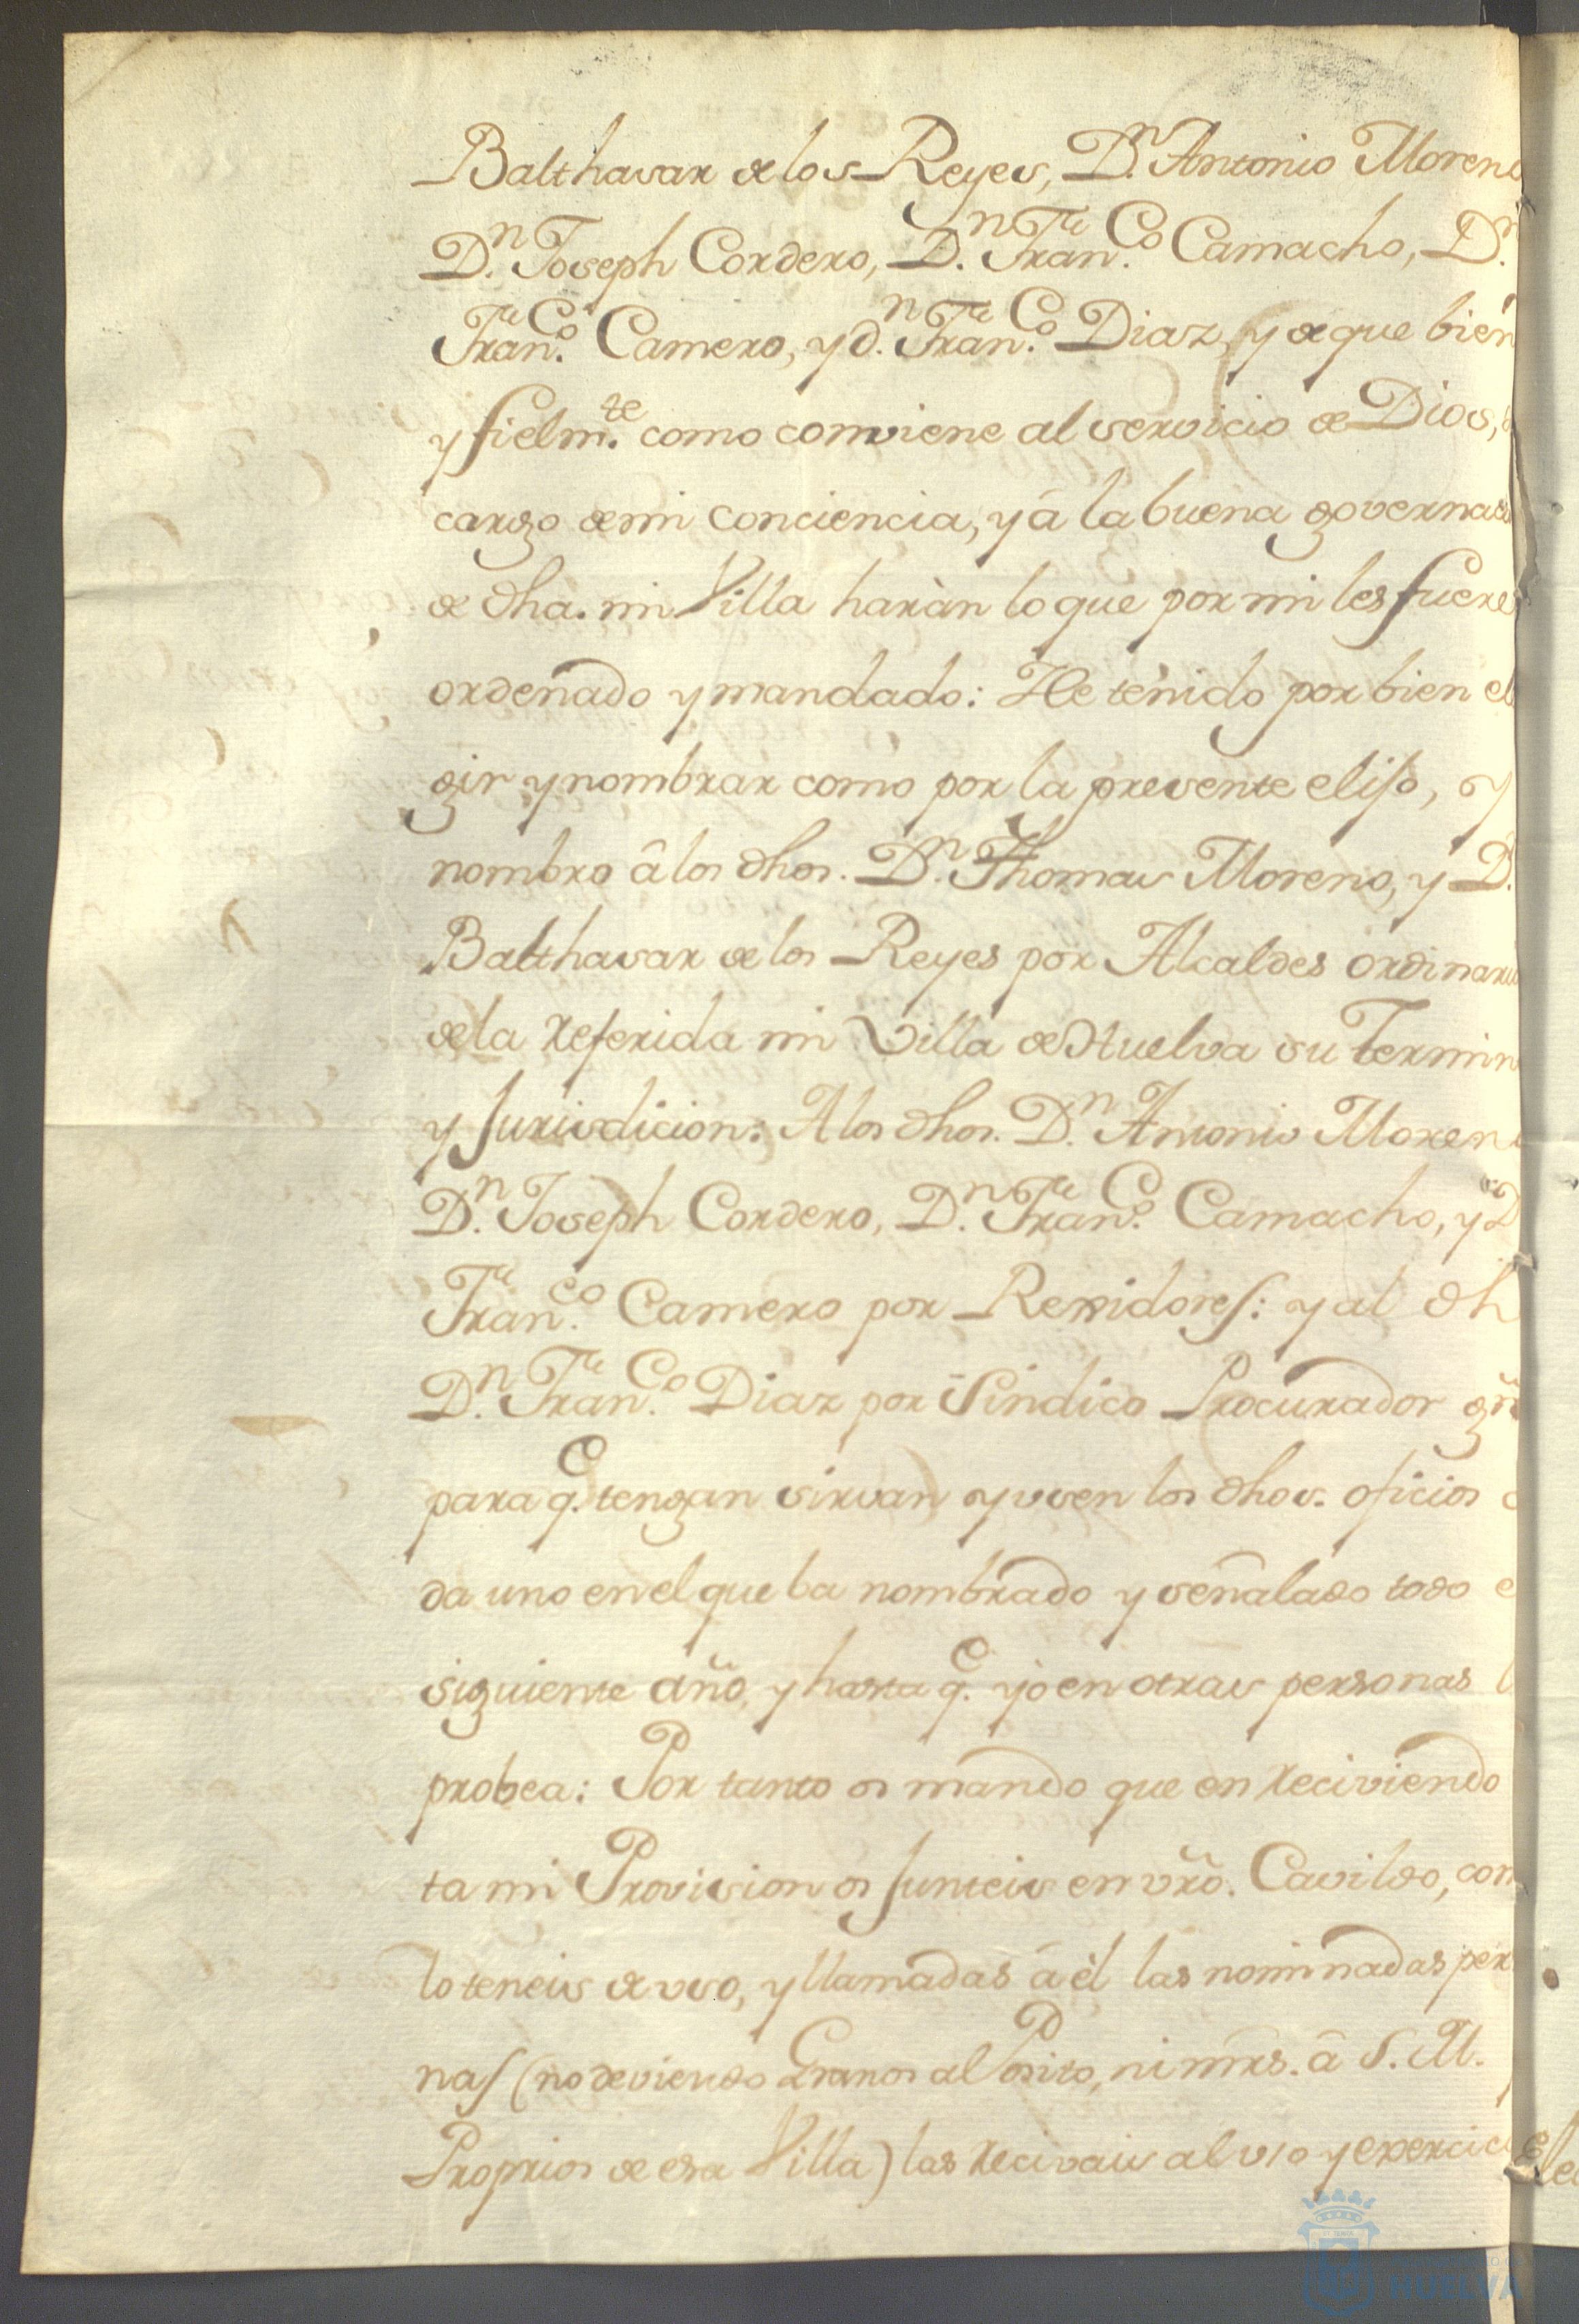 Balthasar de los Reyes, Dn. Antonio Moreno
Dn. Joseph Cordero, Dn. Franco. Camacho, Dn.
Franco. Camero, y dn. Franco. Diaz, y de que bien
y fielmte. como conviene al servicio de Dios,
cargo de mi conciencia, y â la buena governac
de dha. mi Villa haràn lo que por mi les fuere
ordenado y mandado: He tenido por bien el
gir y nombrar como por la presente elijo, y
nombro â los dhos. Dn. Thomas Moreno, y D.
Balthasar de los Reyes por Alcaldes ordinari
de la referida mi Villa de Huelva su Termin
y Jurisdicion: A los dhos. Dn. Antonio Moren
Dn. Joseph Cordero, Dn. Franco. Camacho, y D
Franco. Camero por Rexidores: y al dh
Dn. Franco. Diaz por Sindico Procurador gñ
para qe. tengan sirvan y usen los dhos. oficios
da uno en el que ba nombrado y señalado todo e
siguiente año, y hasta qe. yo en otras personas l
probea: Por tanto os mando que en reciviendo
ta mi Provision os Junteis en vrõ. Cavildo, com
lo teneis de uso, y llamadas â èl las nominadas per
nas (no deviendo Granos al Posito, ni mrs. â S. M.
Proprios de esa Villa) las recivais al uso y exercici
HUELVA